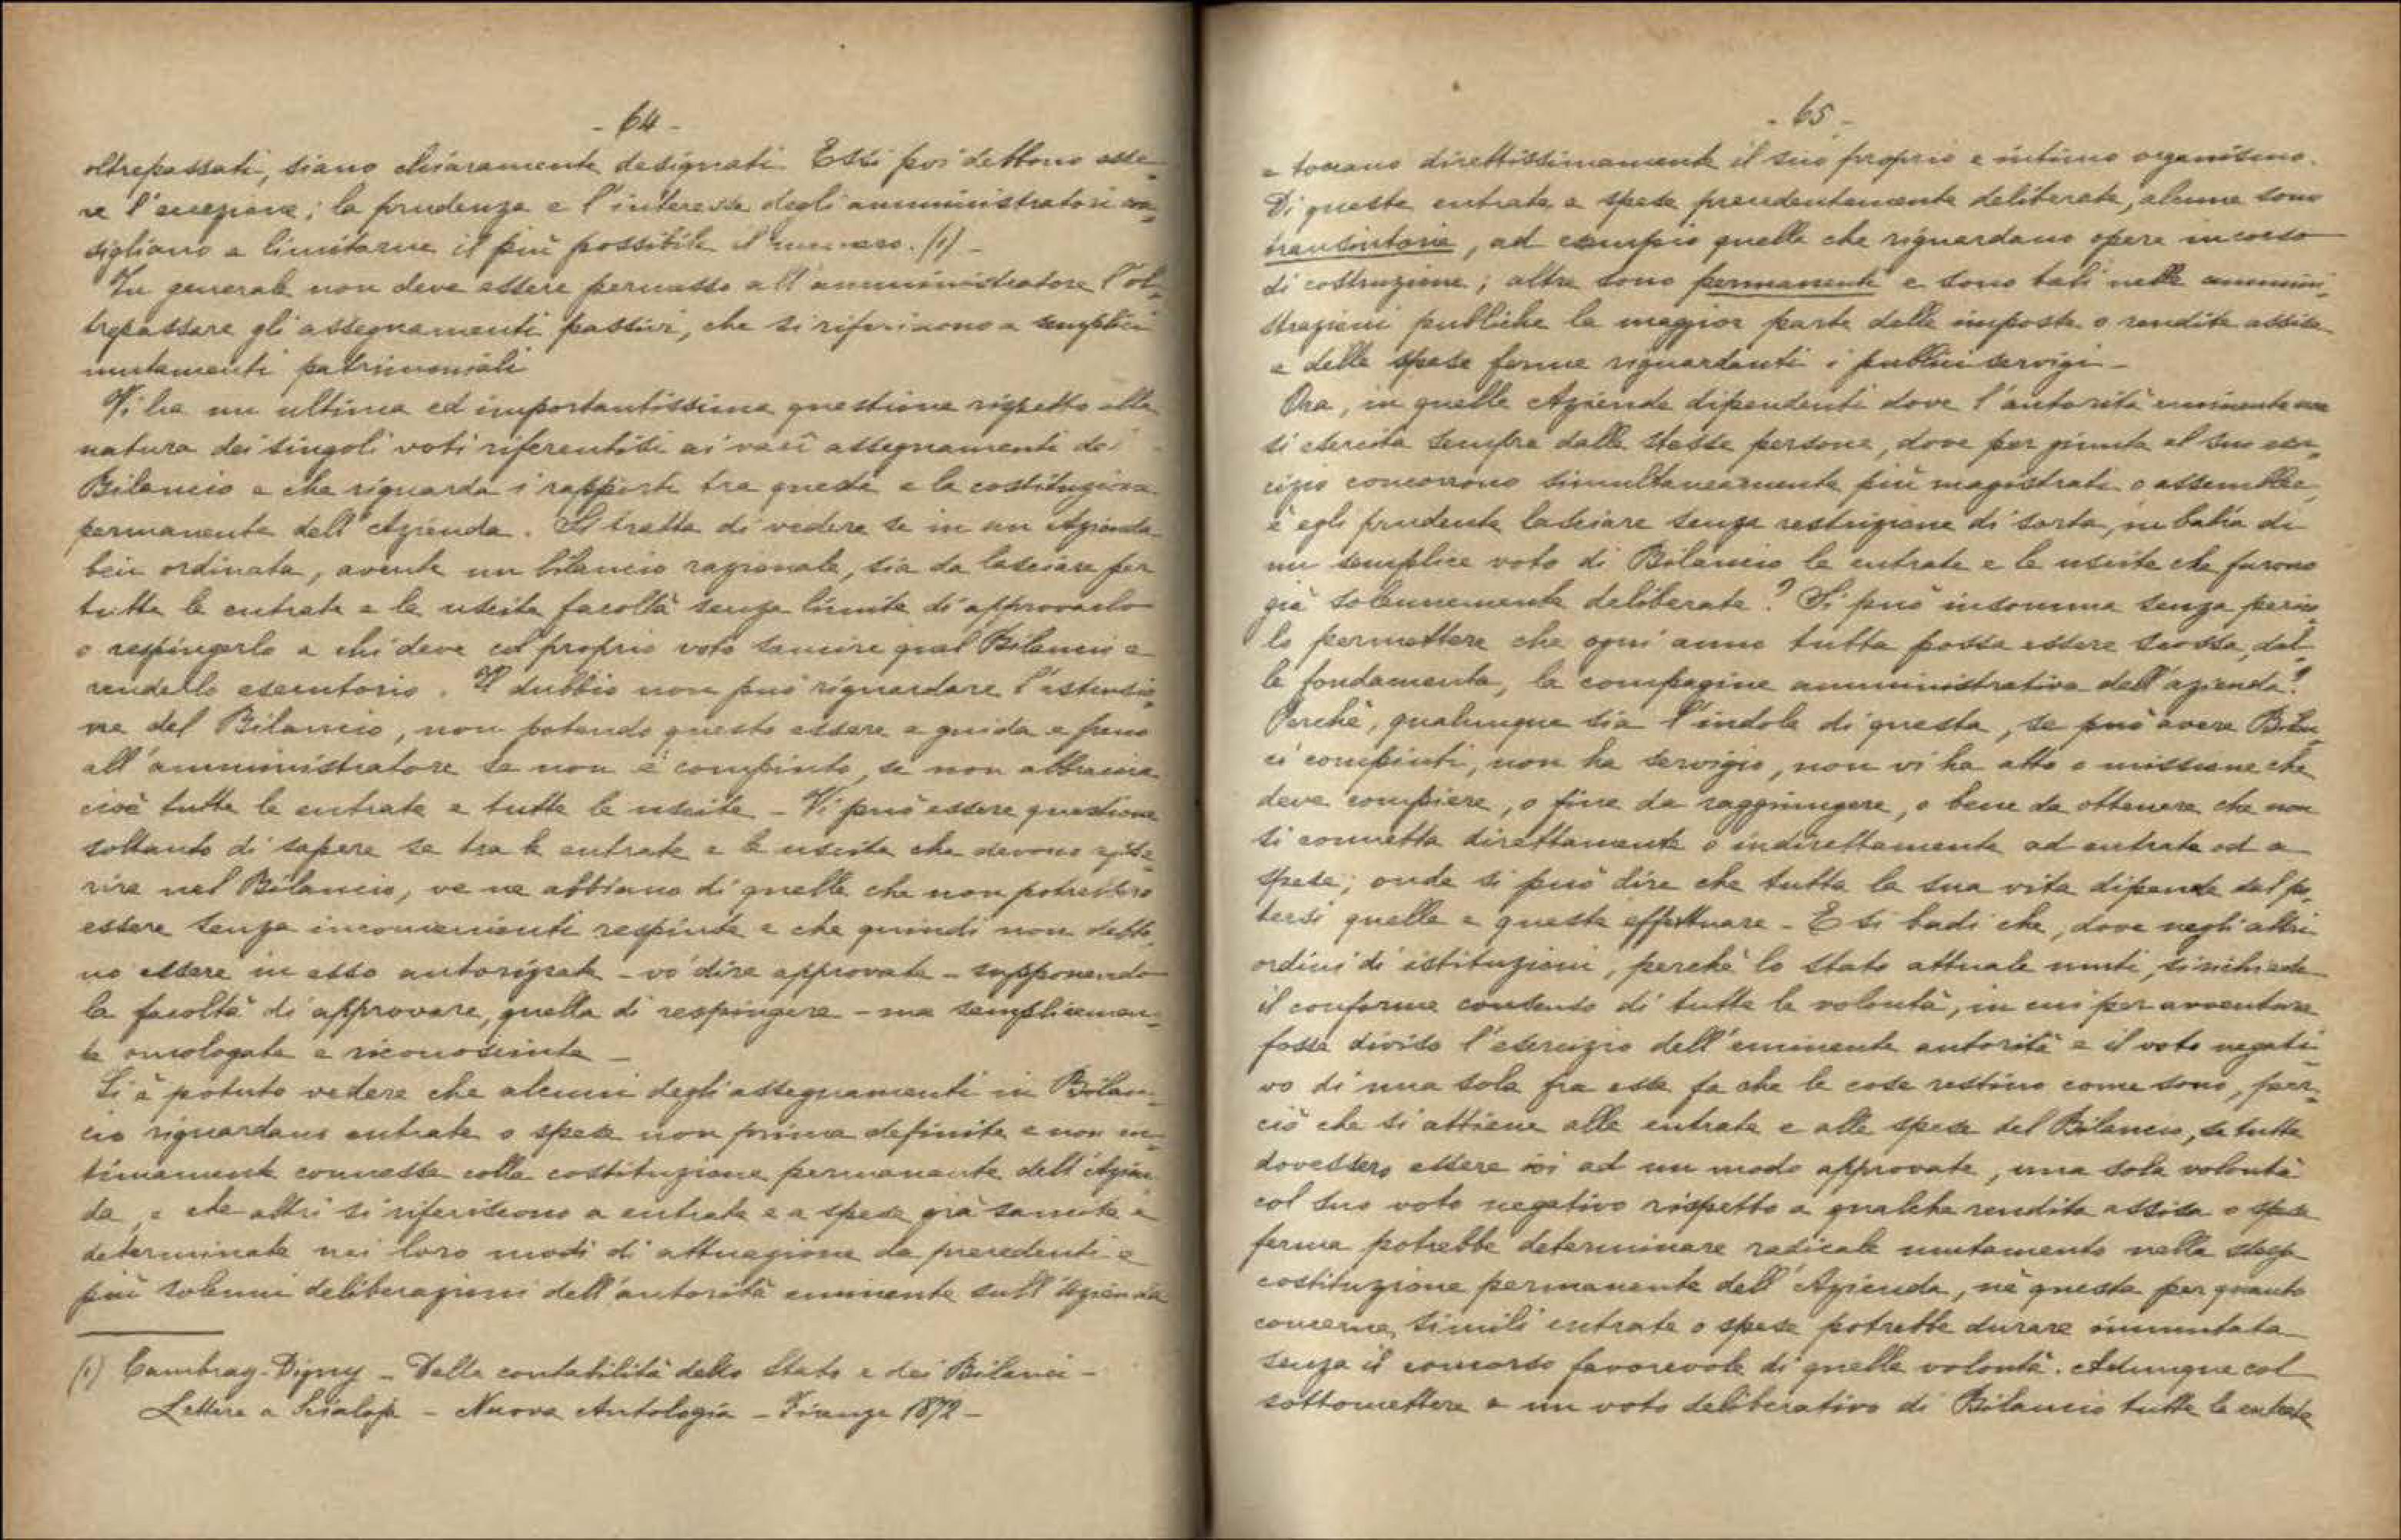 - 64 -
oltrepassati, siano chiaramente designati. Essi poi debbono esse-
re l'eccezione; la prudenza e l'interesse degli amministratori con-
sigliano a limitarne il più possibile il numero. (1) -
In generale non deve essere permesso all'amministratore l'ol-
trepassare gli assegnamenti passivi, che si riferiscono a semplici
mutamenti patrimoniali
Vi ha un ultima ed importantissima questione rispetto alla
natura dei singoli voti riferentisi ai varî assegnamenti del
Bilancio e che riguarda i rapporti tra questi e la costituzione
permanente dell'Azienda. Si tratta di vedere se in un Azienda
ben ordinata, avente un bilancio razionale, sia da lasciare per
tutte le entrate e le uscite facoltà senza limite di approvarlo
o respingerlo a chi deve col proprio voto sancire quel Bilancio e
renderlo esecutorio. Il dubbio non può riguardare l'estensio-
ne del Bilancio, non potendo questo essere e guida e freno
all'amministratore se non è compiuto, se non abbraccia
cioè tutte le entrate e tutte le uscite - Vi può essere questione
soltanto di sapere se tra le entrate e le uscite che devono appa-
rire nel Bilancio, ve ne abbiano di quelle che non potrebbero
essere senza inconvenienti respinte e che quindi non debbo-
no essere in esso autorizzate - vo' dire approvate - supponendo
la facoltà di approvare, quella di respingere - ma semplicemen-
te omologate e riconosciute -
Si è potuto vedere che alcuni degli assegnamenti in Bilan-
cio riguardano entrate o spese non prima definite e non in-
timamente connesse colla costituzione permanente dell'Azien-
da, e che altri si riferiscono a entrate e a spese già sancite e
determinate nei loro modi di attuazione da precedenti e
più solenni deliberazioni dell'autorità eminente sull'Azienda
(1) Cambray-Digny - Della contabilità dello Stato e dei Bilanci -
Lettere a Scialoja - Nuova Antologia - Firenze 1872 -
- 65 -
e toccano direttissimamente il suo proprio e intimo organismo.
Di queste entrate e spese precedentemente deliberate, alcune sono
transitorie, ad esempio quelle che riguardano opere in corso
di costruzione; altre sono permanenti e sono tali nelle ammini-
strazioni pubbliche la maggior parte delle imposte o rendite assise
e delle spese ferme riguardanti i pubblici servigi -
Ora, in quelle Aziende dipendenti dove l'autorità eminente non
si esercita sempre dalle stesse persone, dove per giunta al suo eser-
cizio concorrono simultaneamente più magistrati o assemblee,
è egli prudente lasciare senza restrizione di sorta, in balìa di
un semplice voto di Bilancio le entrate e le uscite che furono
già solennemente deliberate? Si può insomma senza perico-
lo permettere che ogni anno tutta possa essere scossa, dal-
le fondamenta, la compagine amministrativa dell'azienda?
Perchè, qualunque sia l'indole di questa, se può avere Bilan-
ci compiuti, non ha servigio, non vi ha atto o missione che
deve compiere, o fine da raggiungere, o bene da ottenere che non
si connetta direttamente o indirettamente ad entrate od a
spese; onde si può dire che tutta la sua vita dipende dal po-
tersi quelle e queste effettuare - E si badi che, dove negli altri
ordini di istituzioni, perchè lo stato attuale muti, si richiede
il conforme consenso di tutte le volontà, in cui per avventura
fosse diviso l'esercizio dell'eminente autorità e il voto negati-
vo di una sola fra esse fa che le cose restino come sono, per
ciò che si attiene alle entrate e alle spese del Bilancio, se tutte
dovessero essere ivi ad un modo approvate, una sola volontà
col suo voto negativo rispetto a qualche rendita assisa o spesa
ferma potrebbe determinare radicale mutamento nella stessa
costituzione permanente dell'Azienda, nè questa per quanto
concerne simili entrate o spese potrebbe durare immutata
senza il concorso favorevole di quella volontà. Adunque col
sottomettere a un voto deliberativo di Bilancio tutte le entrate